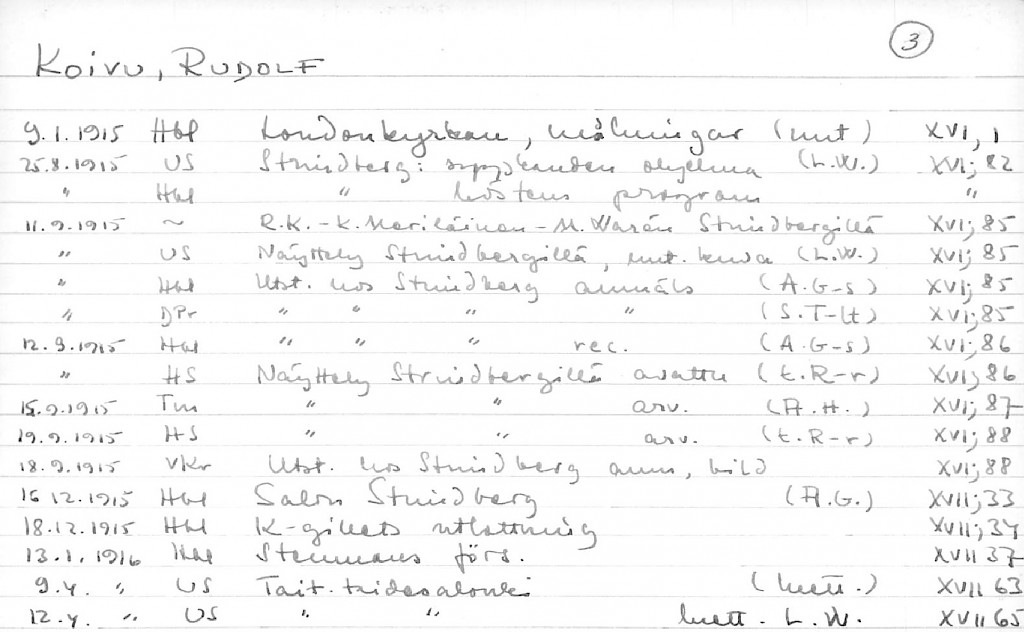 3
KOIVU, RUDOLF
9.1.1915 Hbl Londonkyrkan, målningar (mt) XVI, 1
25.8.1915 US Strindberg: syyskauden ohjelma (L.W.) XVI; 82
" Hbl " höstens program "
11.9.1915 ~ R.K. - K. Meriläinen - M. Warén Strindbergillä XVI; 85
" US Näyttely Strindbergillä, mt. kuva (L.W.) XVI; 85
" Hbl Utst. hos Strindberg anmäls (A.G-s) XVI; 85
" DPr " " " " (S.T-lt) XVI; 85
12.9.1915 Hbl " " " rec. (A.G-s) XVI; 86
" HS Näyttely Strindbergillä avattu (E.R-r) XVI; 86
15.9.1915 Tm " " arv. (A.H.) XVI; 87
19.9.1915 HS " " arv. (E.R-r) XVI; 88
18.9.1915 VKr Utst. hos Strindberg anm, bild XVI; 88
16 12.1915 Hbl Salon Strindberg (A.G.) XVII; 33
18.12.1915 Hbl K-gillets utlottning XVII; 34
13.1.1916 Hbl Stenmans förs. XVII 37
9.4. " US Tait. taidesalonki (luett.) XVII 63
12.4. " US " " luett. L.W. XVII 65